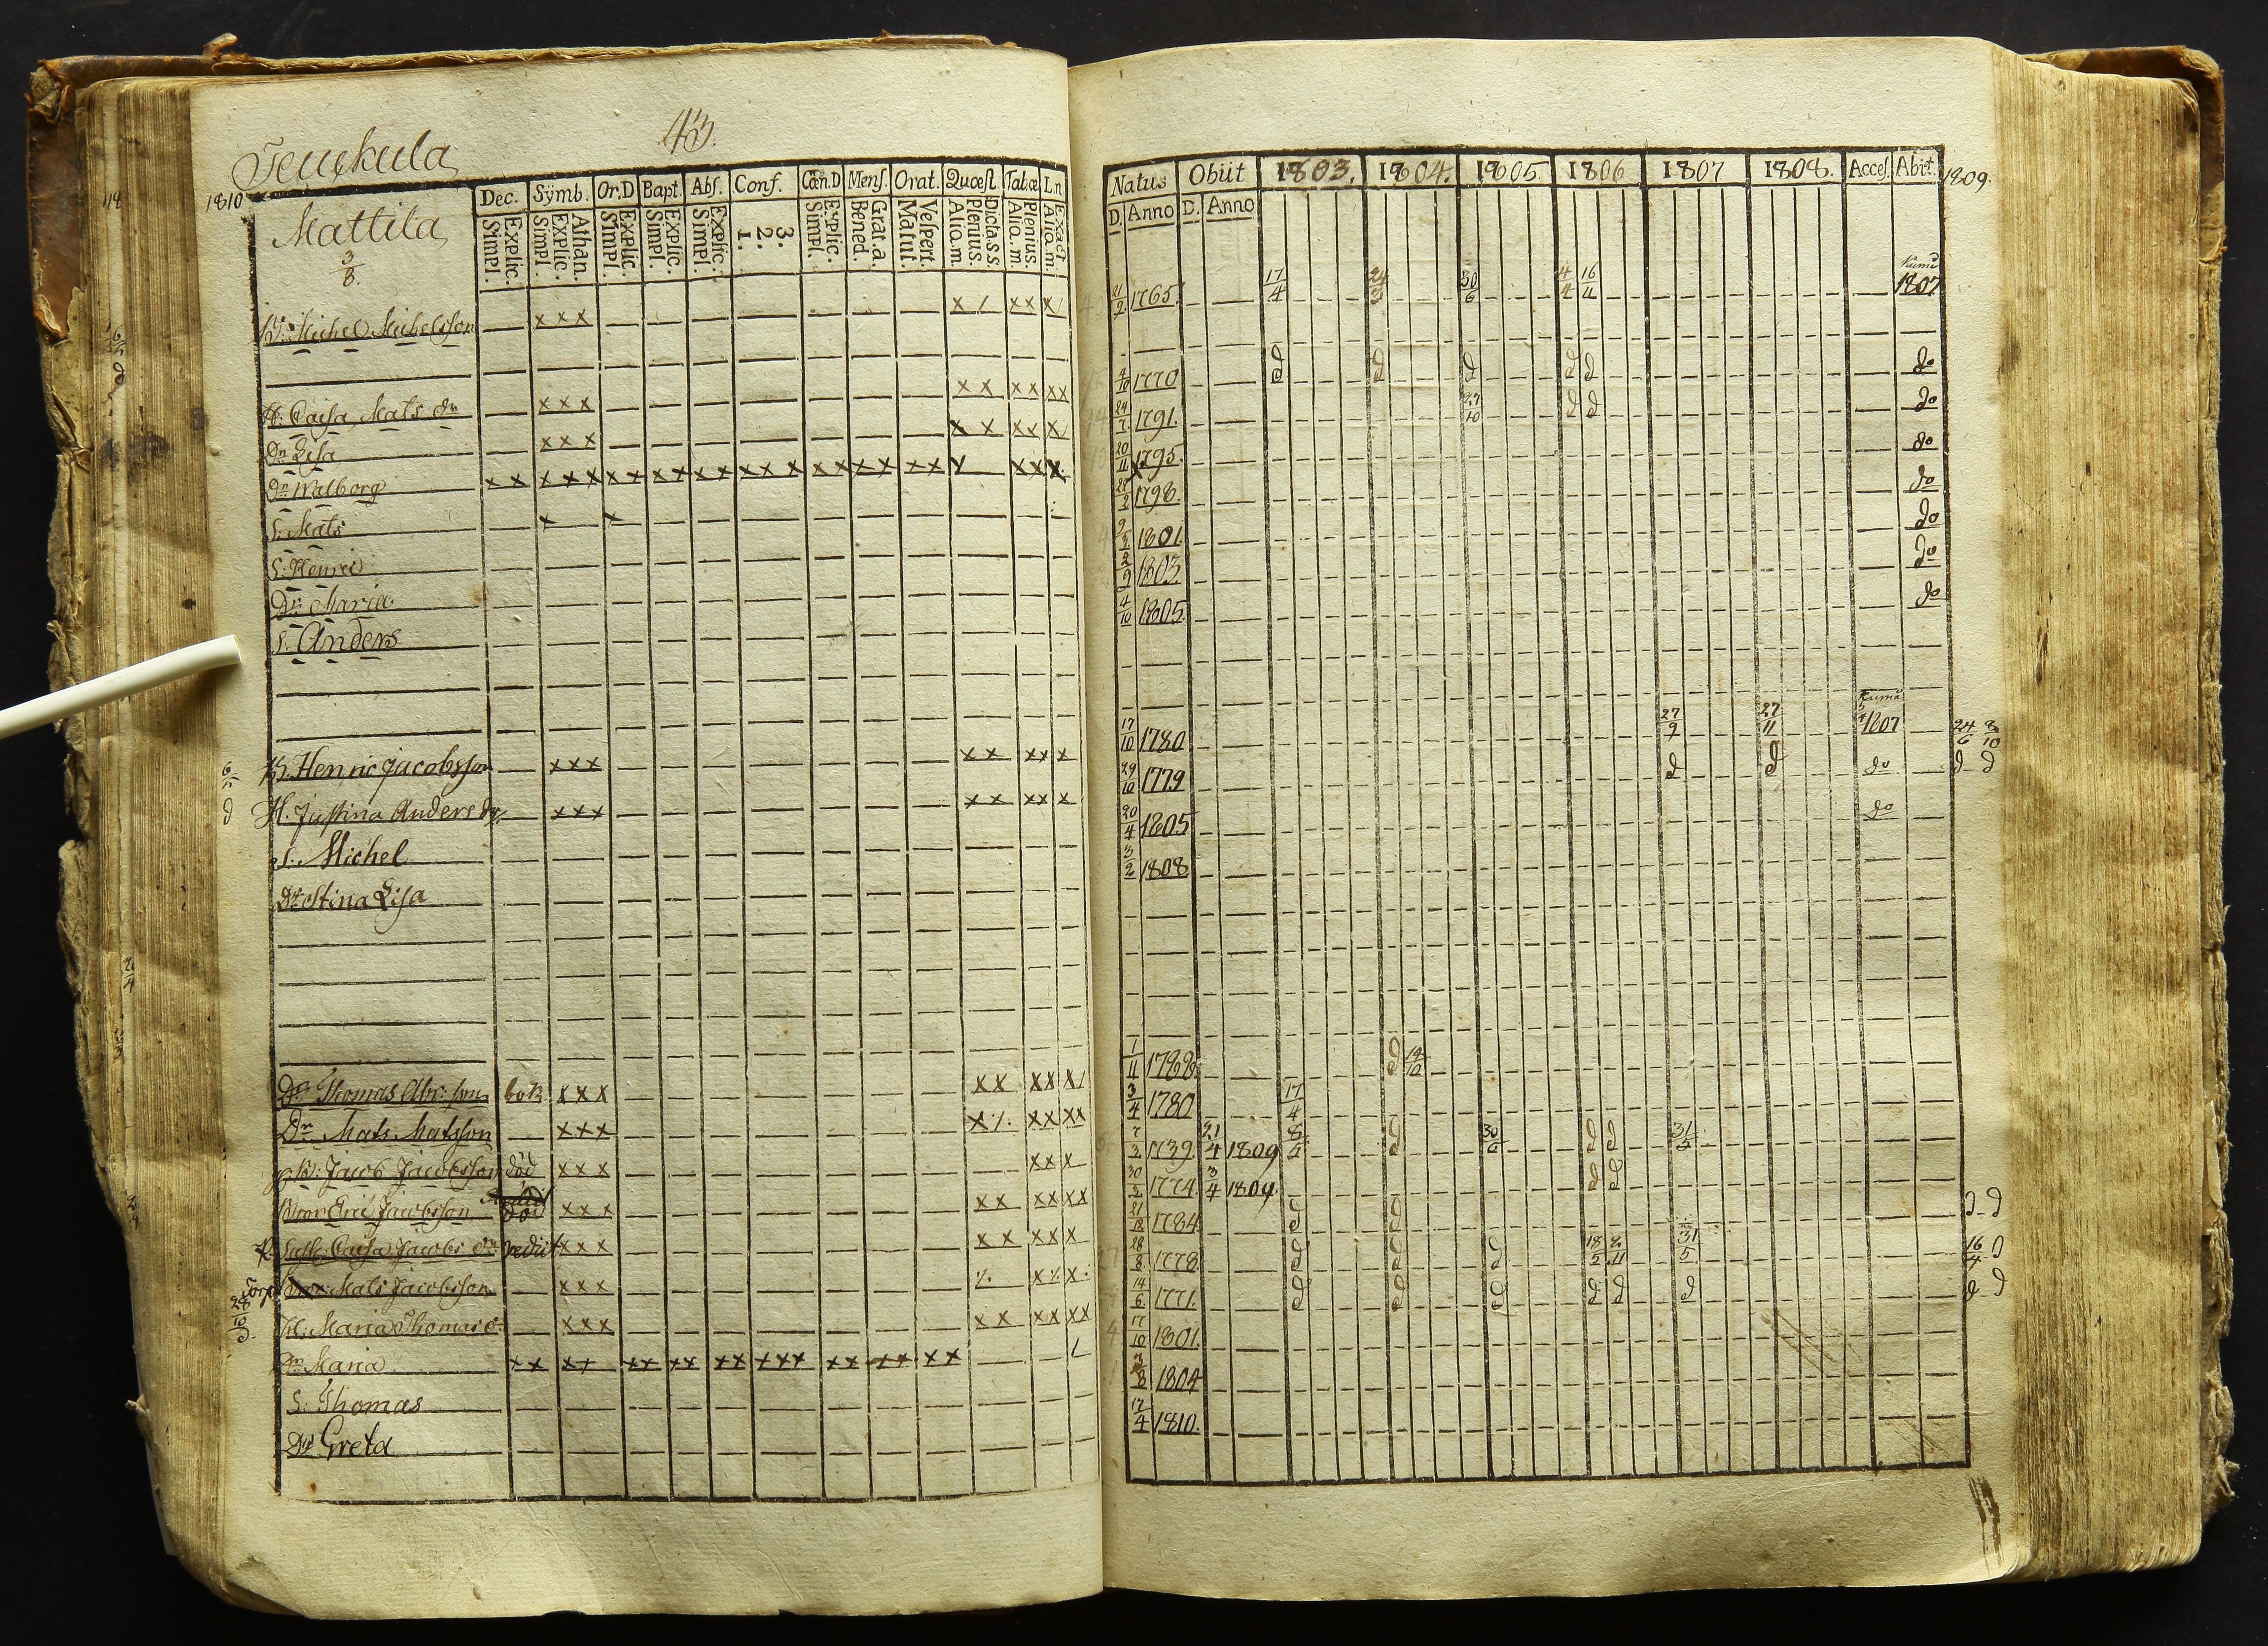 43.
1810
Mattila
3/8.
Dec. Symb. Or.D Bapt. Abs. Conf. Cœn.D Mens. Orat. Quæst. Tabœ L.n.
Explic. Simpl.
Athan. Explic. Simpl.
Explic. Simpl.
Explic. Simpl.
Explic. Simpl.
3. 2. 1.
Explic. Simpl.
Grat.a. Bened.
Vespert. Matut.
Dicta.S.S. Plenius. Alia.m.
Plenius. Alia.m.
Exact Alia.m.
B: Michel Michelsson x x x x / x x x /
H: Caisa Mats dr x x x x x x x x x
Dr Lisa x x x x x x x x /
Dr Walborg x x x x x x x x x x x x x x x x x x x x x x x x x
S: Mats x x
S: Henric
Dr Maria
S: Anders
6/5 B. Henric Jacobsson x x x x x x x x
d H. Justina Anders dr. x x x x x x x x
S: Michel
Dr Stina Lisa
Dr Thomas Abr:son bok x x x x x x x x /
Dr Mats Matsson x x x x ٪ x x x x
B: Jacob Jacobsson död x x x x x x
Bror Eric Jacobsson död x x x x x x x x x
Caisa Jacobs dr x x x x x x x x
Torp Mats Jacobsson x x x
28/10 d. H: Maria Thomas d: x x x x x x x x x
Dr Maria x x x x x x x x x x x x x x x x x x x /
S: Thomas
Dr Greta
Natus Obiit 1803. 1804. 1805. 1806 1807 1808. Acces. Abiit. 1809.
D. Anno D. Anno
21/9 1765. 17/4 30/6 4/4 16/11 Kumo 1807
4/10 1770 d d d d d do
24/7 1791. 27/10 d d do
20/11 1795. do
1798. do
1801. do
2/9 1803. do
4/10 1805. do
17/10 1780 27/9 27/11 Kumo 1807 24/6 8/10
29/10 1779 d d do d d
20/4 1805 do
3/2 1808
1/11 1788. d 14/10
3/4 1780 17/4
1739. 21/4 1809 d d d
1774 3/4 1809. d d
1784 d d d d
28/8 1778. d d d 31/5 16/4 d
14/6 1771. d d d d d d d d
17/10 1801.
1804
17/4 1810.